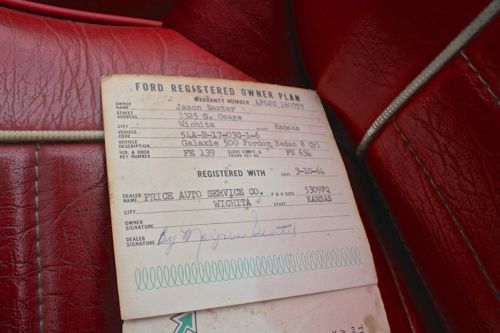 FORD REGISTERED OWNER PLAN
WARRANTY NUMBER 4P62C 160757
OWNER NAME Jason Baxter
STREET ADDRESS 3325 S. Osage
CITY Wichita STATE Kansas
VEHICLE CODE 54A-B-17-030-1-6
VEHICLE DESCRIPTION Galaxie 500 Fordor Sedan 8 Cyl
IGN. & DOOR KEY NUMBER FE 139 GLOVE COMPT. & TRUNK KEY NO. FN 634
REGISTERED WITH DATE 3-10-64
DEALER NAME PRICE AUTO SERVICE CO. P & A CODE 5309FQ
CITY WICHITA STATE KANSAS
OWNER SIGNATURE
DEALER SIGNATURE By